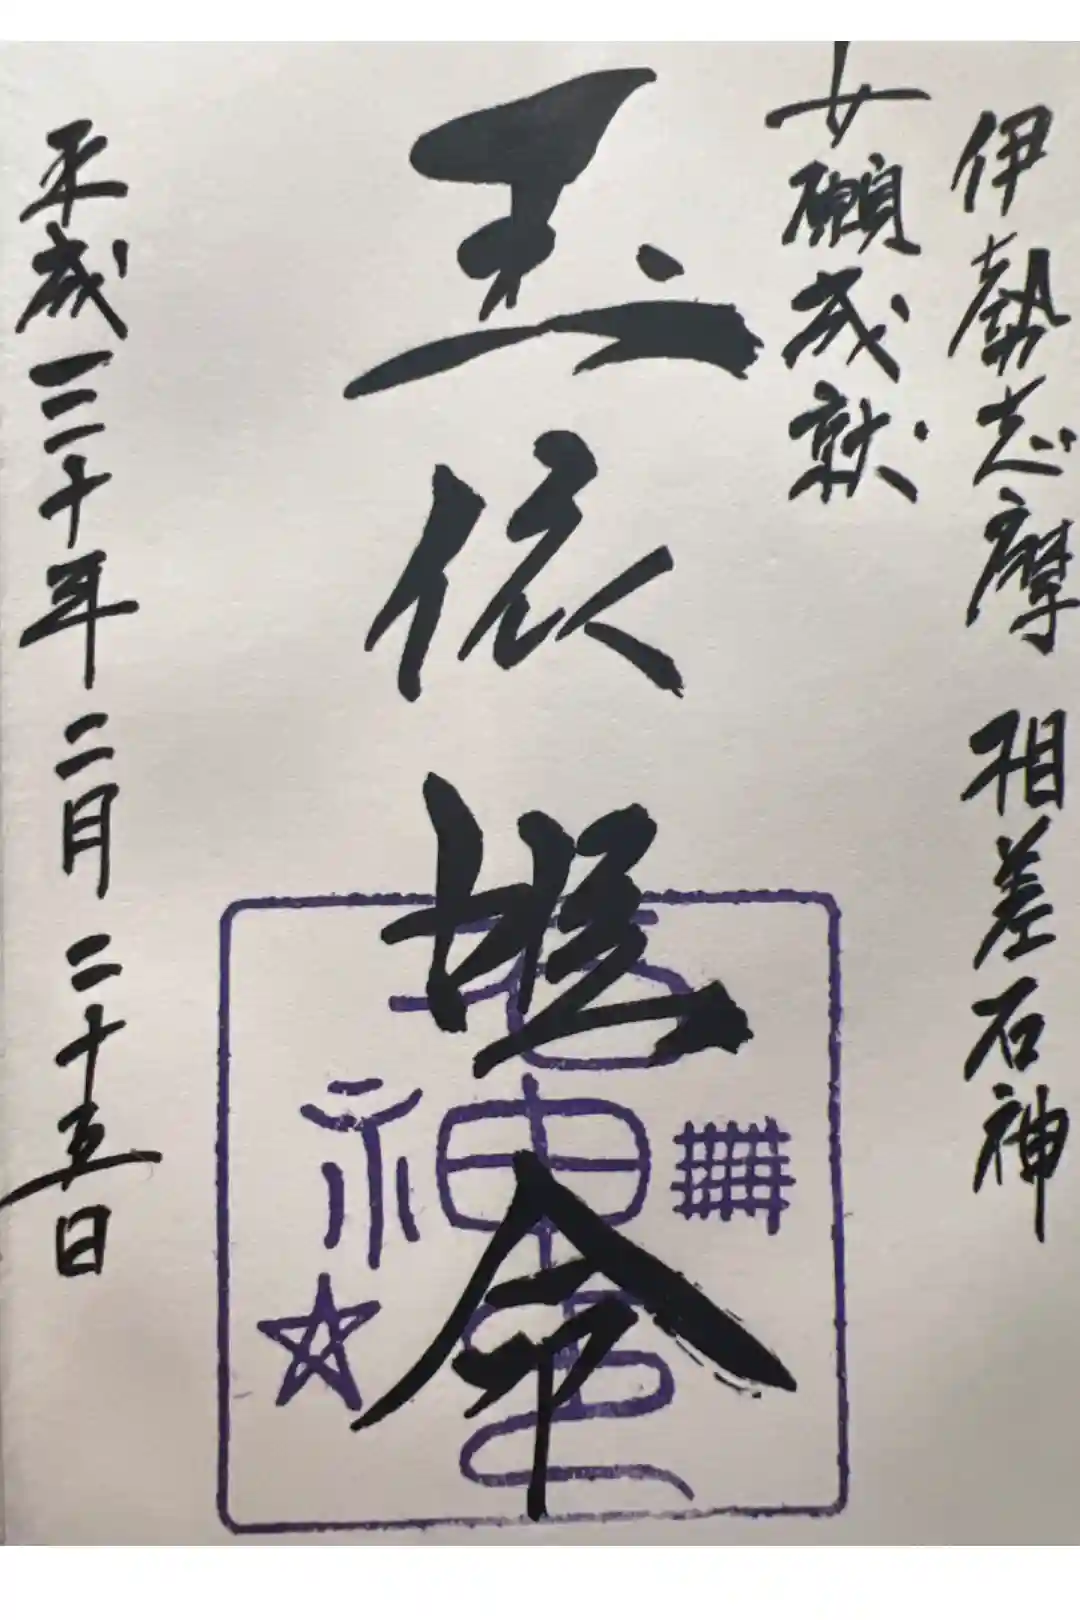 伊勢志摩 相差石神
女願成就
玉依姫命
平成三十年二月二十五日
神